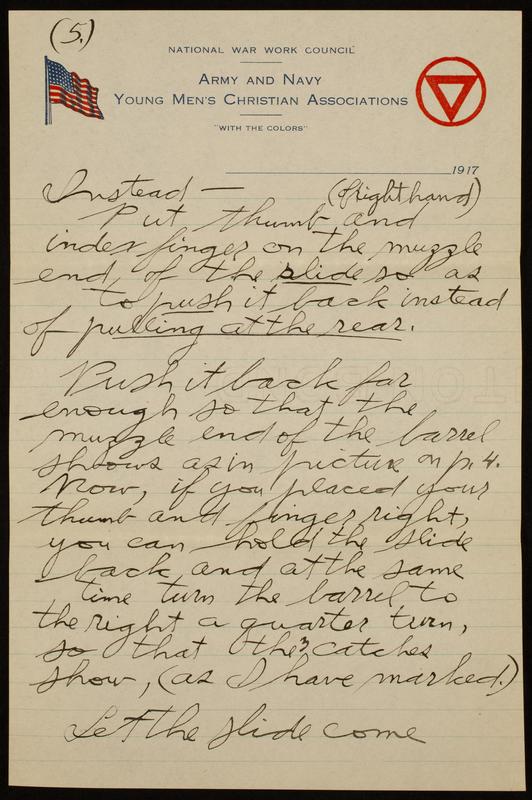 (5.)
NATIONAL WAR WORK COUNCIL
ARMY AND NAVY
YOUNG MEN'S CHRISTIAN ASSOCIATIONS
"WITH THE COLORS"
1917
Instead — (of right hand)
Put thumb and
index finger on the muzzle
end of the slide so as
to push it back instead
of pulling at the rear.
Push it back far
enough so that the
muzzle end of the barrel
shows as in picture on p. 4.
Now, if you placed your
thumb and finger right,
you can hold the slide
back and at the same
time turn the barrel to
the right a quarter turn,
so that the 3 catches
show, (as I have marked.)
Let the slide come